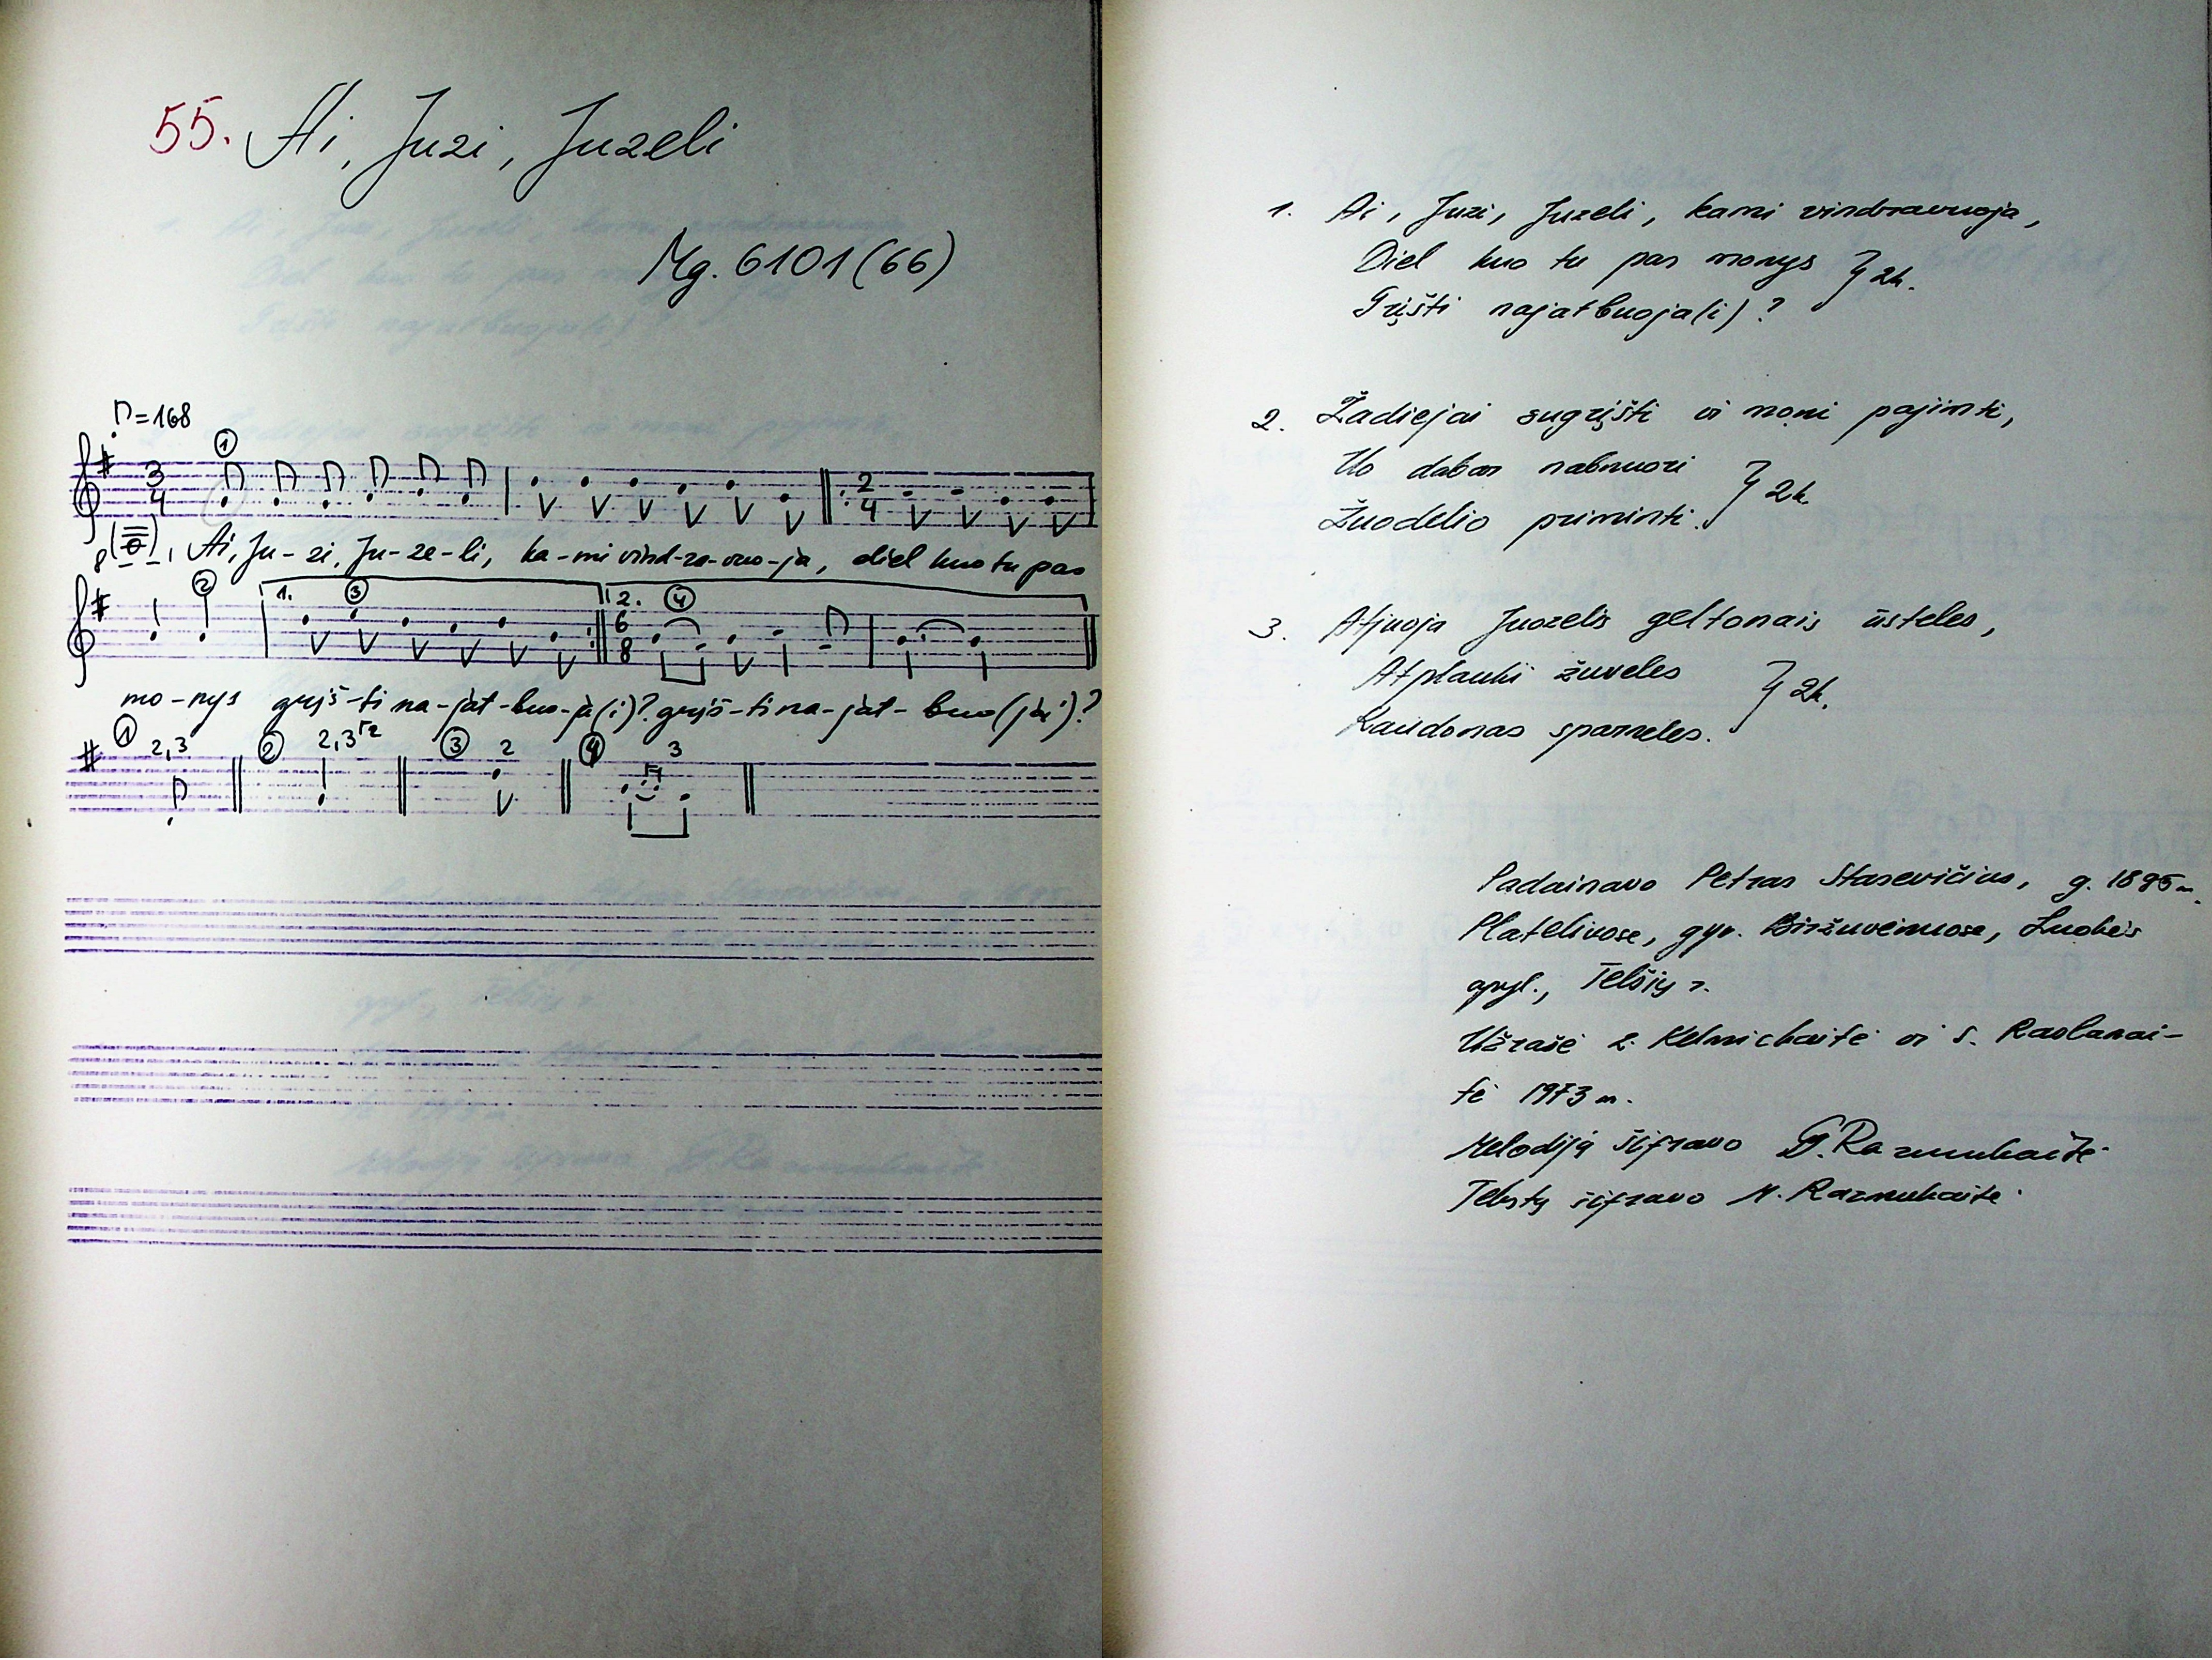 55. Ai, Juzi, Juzeli
Mg. 6101 (66)
♪=168
①
3/4 2/4
Ai, Ju-zi, Ju-ze-li, ka-mi vind-ra-vuo-ja, diel kuo tu pas
② 1. ③ 2. ④
6/8
mo-nys grįš-ti na-jat-buo-ja(i)? grįš-ti na-jat-buo(jai)?
① 2,3 ② 2,3 ③ 2 ④ 3
1. Ai, Juzi, Juzeli, kami vindravuoja,
Diel kuo tu pas monys } 2k.
Grįšti najatbuoja(i)?
2. Žadiejai sugrįšti ir moni pajimti,
Uo dabar nabnuori } 2k.
Žuodelio priminti.
3. Atjuoja Juozelis geltonais ūsteles,
Atplaukį žuveles } 2k.
Raudonas sparneles.
Padainavo Petras Stasevičius, g. 1895 m.
Plateliuose, gyv. Biržuvėnuose, Luokės
apyl., Telšių r.
Užrašė Z. Kelmickaitė ir S.
tė 1973 m.
Melodiją šifravo G. Razmukaitė
Tekstą šifravo M. Razmukaitė